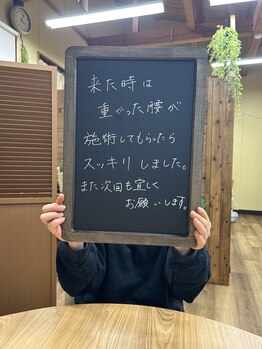 来た時は
重かった腰が
施術してもらったら
スッキリしました。
また次回も宜しく
お願いします。